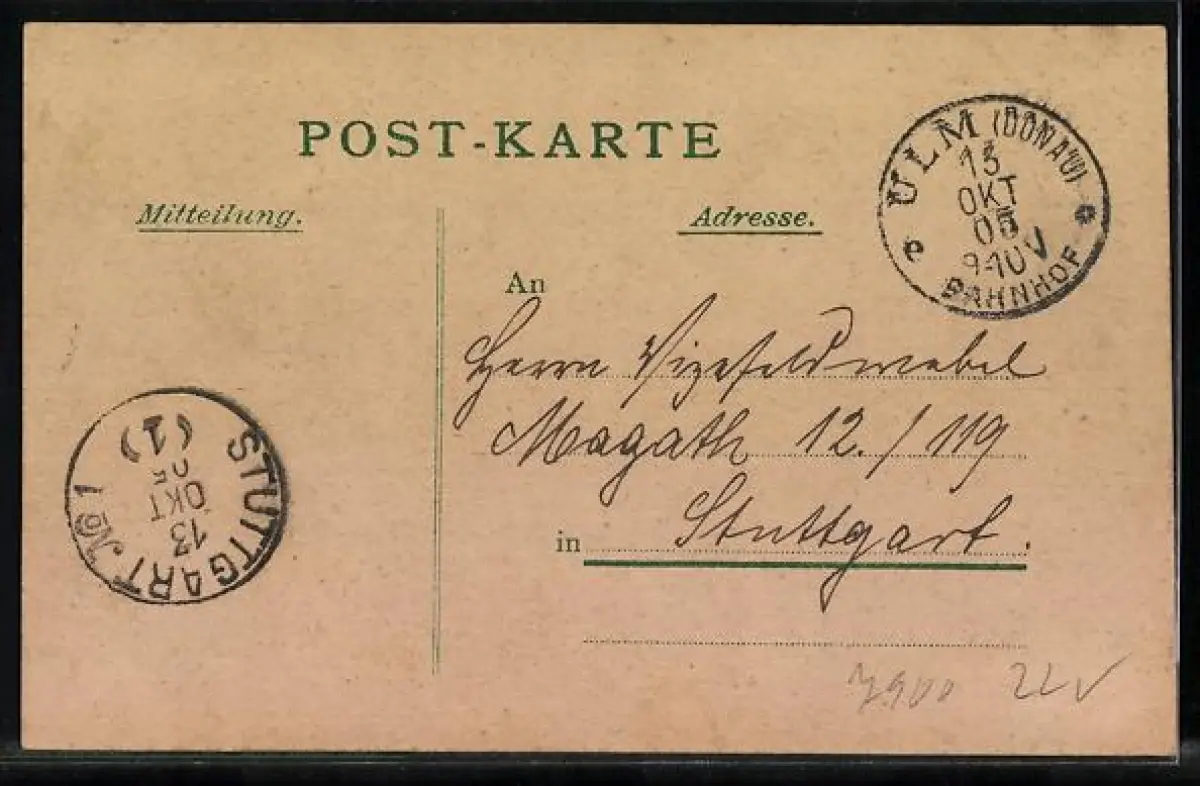 POST-KARTE
Mitteilung.
Adresse.
ULM (DONAU)
13
OKT
05
BAHNHOF
An
Herrn Vizefeldwebel
Magath 12./119
in Stuttgart.
STUTTGART No 1
13
OKT
05
(1)